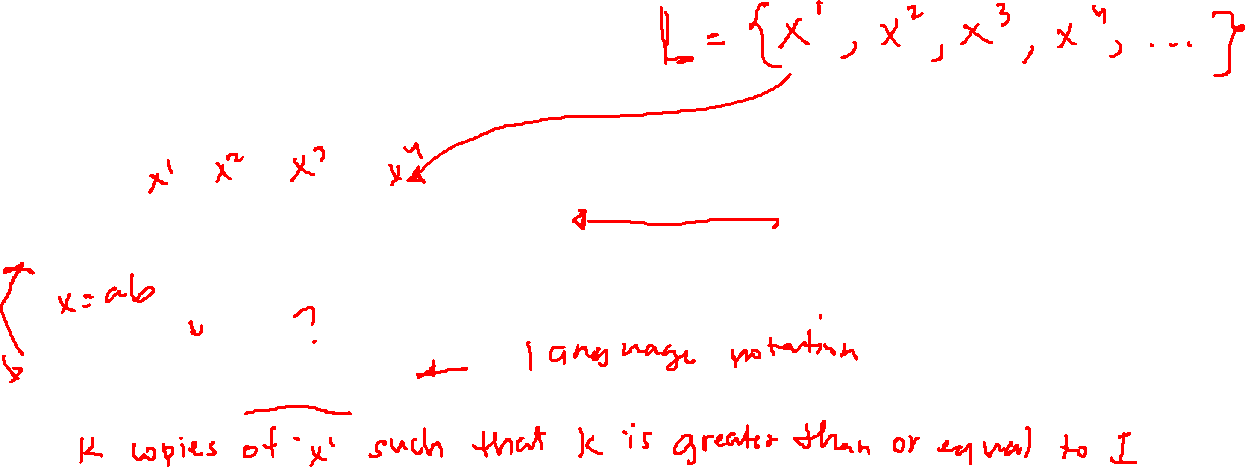 L = {x¹, x², x³, x⁴, ...}
x¹ x² x³ x⁴
x = ab
?
language notation
K copies of 'x' such that k is greater than or equal to 1